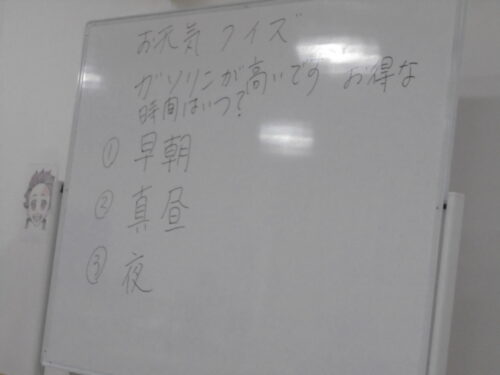 お元気クイズ
ガソリンが高いです お得な
時間はいつ?
① 早朝
② 真昼
③ 夜